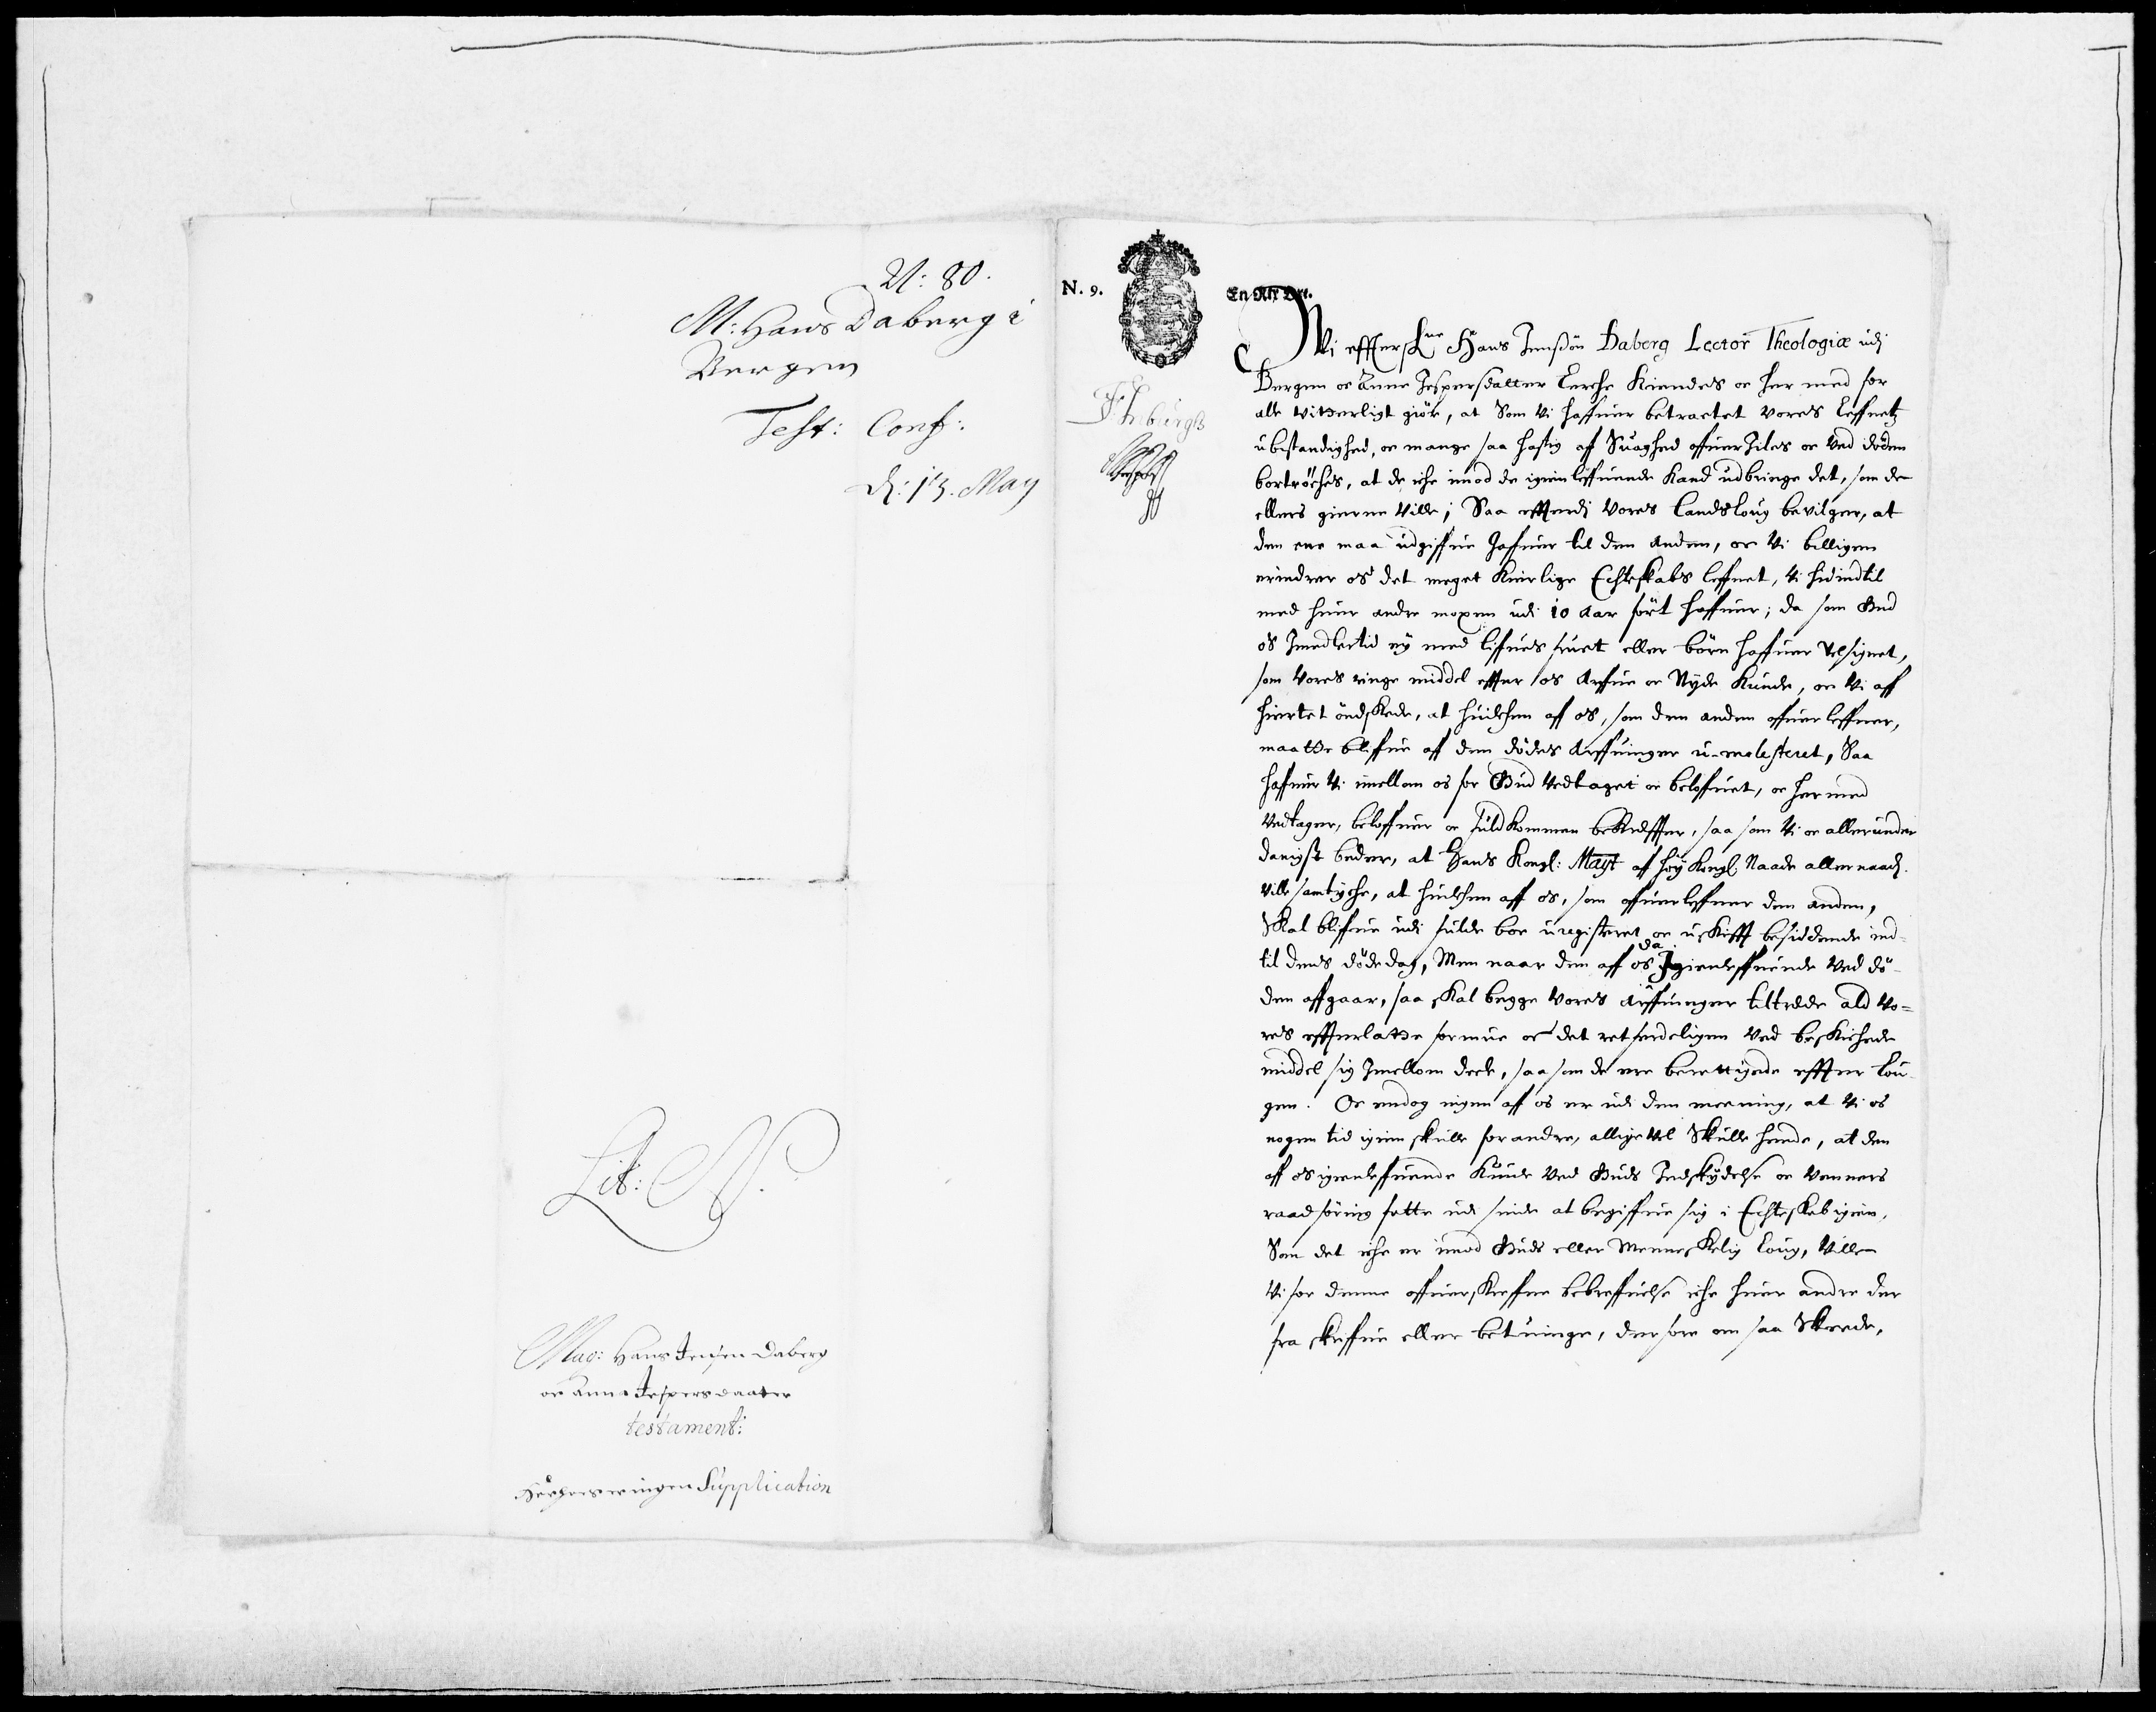 N: 80.
M: Hans Daberg i
Bergen
Test: Conf:
d: 13. May
Lit: N.
Mag: Hans Jensen Daberg
oc Anna Jespersdaater
testament:
Supplication
N. 9.
En Rix Ort.
Vi effterskrne Hans Jensøn Daberg Lector Theologiæ udj
Bergen oc Anne Jespersdatter Lerche Kiendes oc her med for
alle vitterligt giør, at Som Vi haffuer betractet vores Leffnetz
ubestandighed, oc mange saa hastig aff Suaghed offueriles oc Ved døden
bortrøches, at de iche imod de igienleffuende Kand udbringe det, som de
ellers gierne Ville; Saa efftersom Vores Landsloug bevilger, at
den ene maa udgiffue Gaffuer til den anden, oc Vi billigen
erindrer os det meget Kierlige Echteskabs leffnet, Vi hidindtil
med huer andre udi 10 aar ført haffuer; da som Gud
os Imedlertid ey med liffues fruct eller børn haffuer Velsignet,
som Vores ringe middel effter os Arffue oc Nyde Kunde, oc Vi aff
hiertet ønskede, at huilchen aff os, som den anden offuerleffuer,
maatte bliffue aff den dødes Arffuinger u-molesteret, Saa
haffuer Vi imellom os for Gud Vedtaget oc beloffuet, oc her med
Vedtager, beloffuer oc fuldkommen bekreffter, saa som Vi oc allerunder
danigst beder, at Hans Kongl: Mayt aff høy Kongl Naade allernaadj.
Ville samtyche, at huilchen aff os, som offuerleffuer den anden,
Skal bliffue udi fulde boe uregisteret oc uskifft besiddende ind-
til dends døde dag, Men naar den aff os da Igienleffuende Ved dø-
den affgaar, saa skal begge Vores Arffuinger tiltræde ald Vo=
res effterlatte formue oc det retferdeligen Ved beskichede
middel sig Imellom deele, saa som de ere berettigede effter Lou-
gen. Oc endog ingen aff os er udi den meening, at Vi os
nogen tid igien skulle forandre, alligevel Skulle hende, at den
aff os igienleffuende Kunde Ved Guds Indskydelse oc Venners
raadføring fatte udi sinde at begiffue sig i Echteskab igien,
Som det iche er imod Guds eller Menneskelig Loug, Ville
Vi for denne offuerskreffne bebreffuelse iche huer andre der
fra skriffue eller betuinge, derfore om saa Skeede,